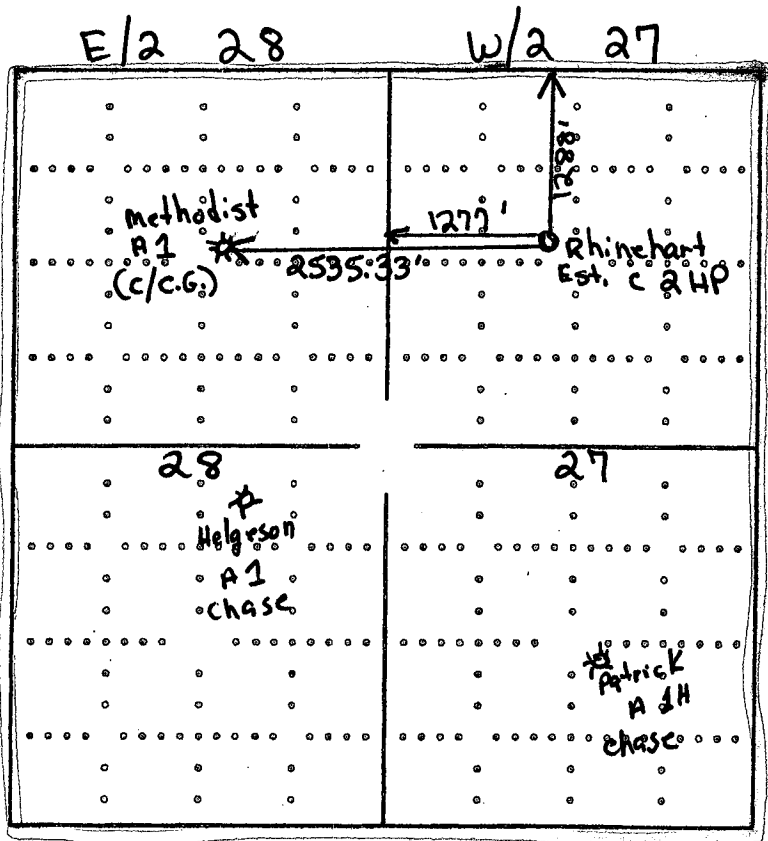 E/2 28
W/2 27
1288'
methodist
A 1
(C/C.G.)
1277'
2535.33'
Rhinehart
Est. C 2 HP
28
27
Helgeson
A 1
chase
Patrick
A 1H
chase